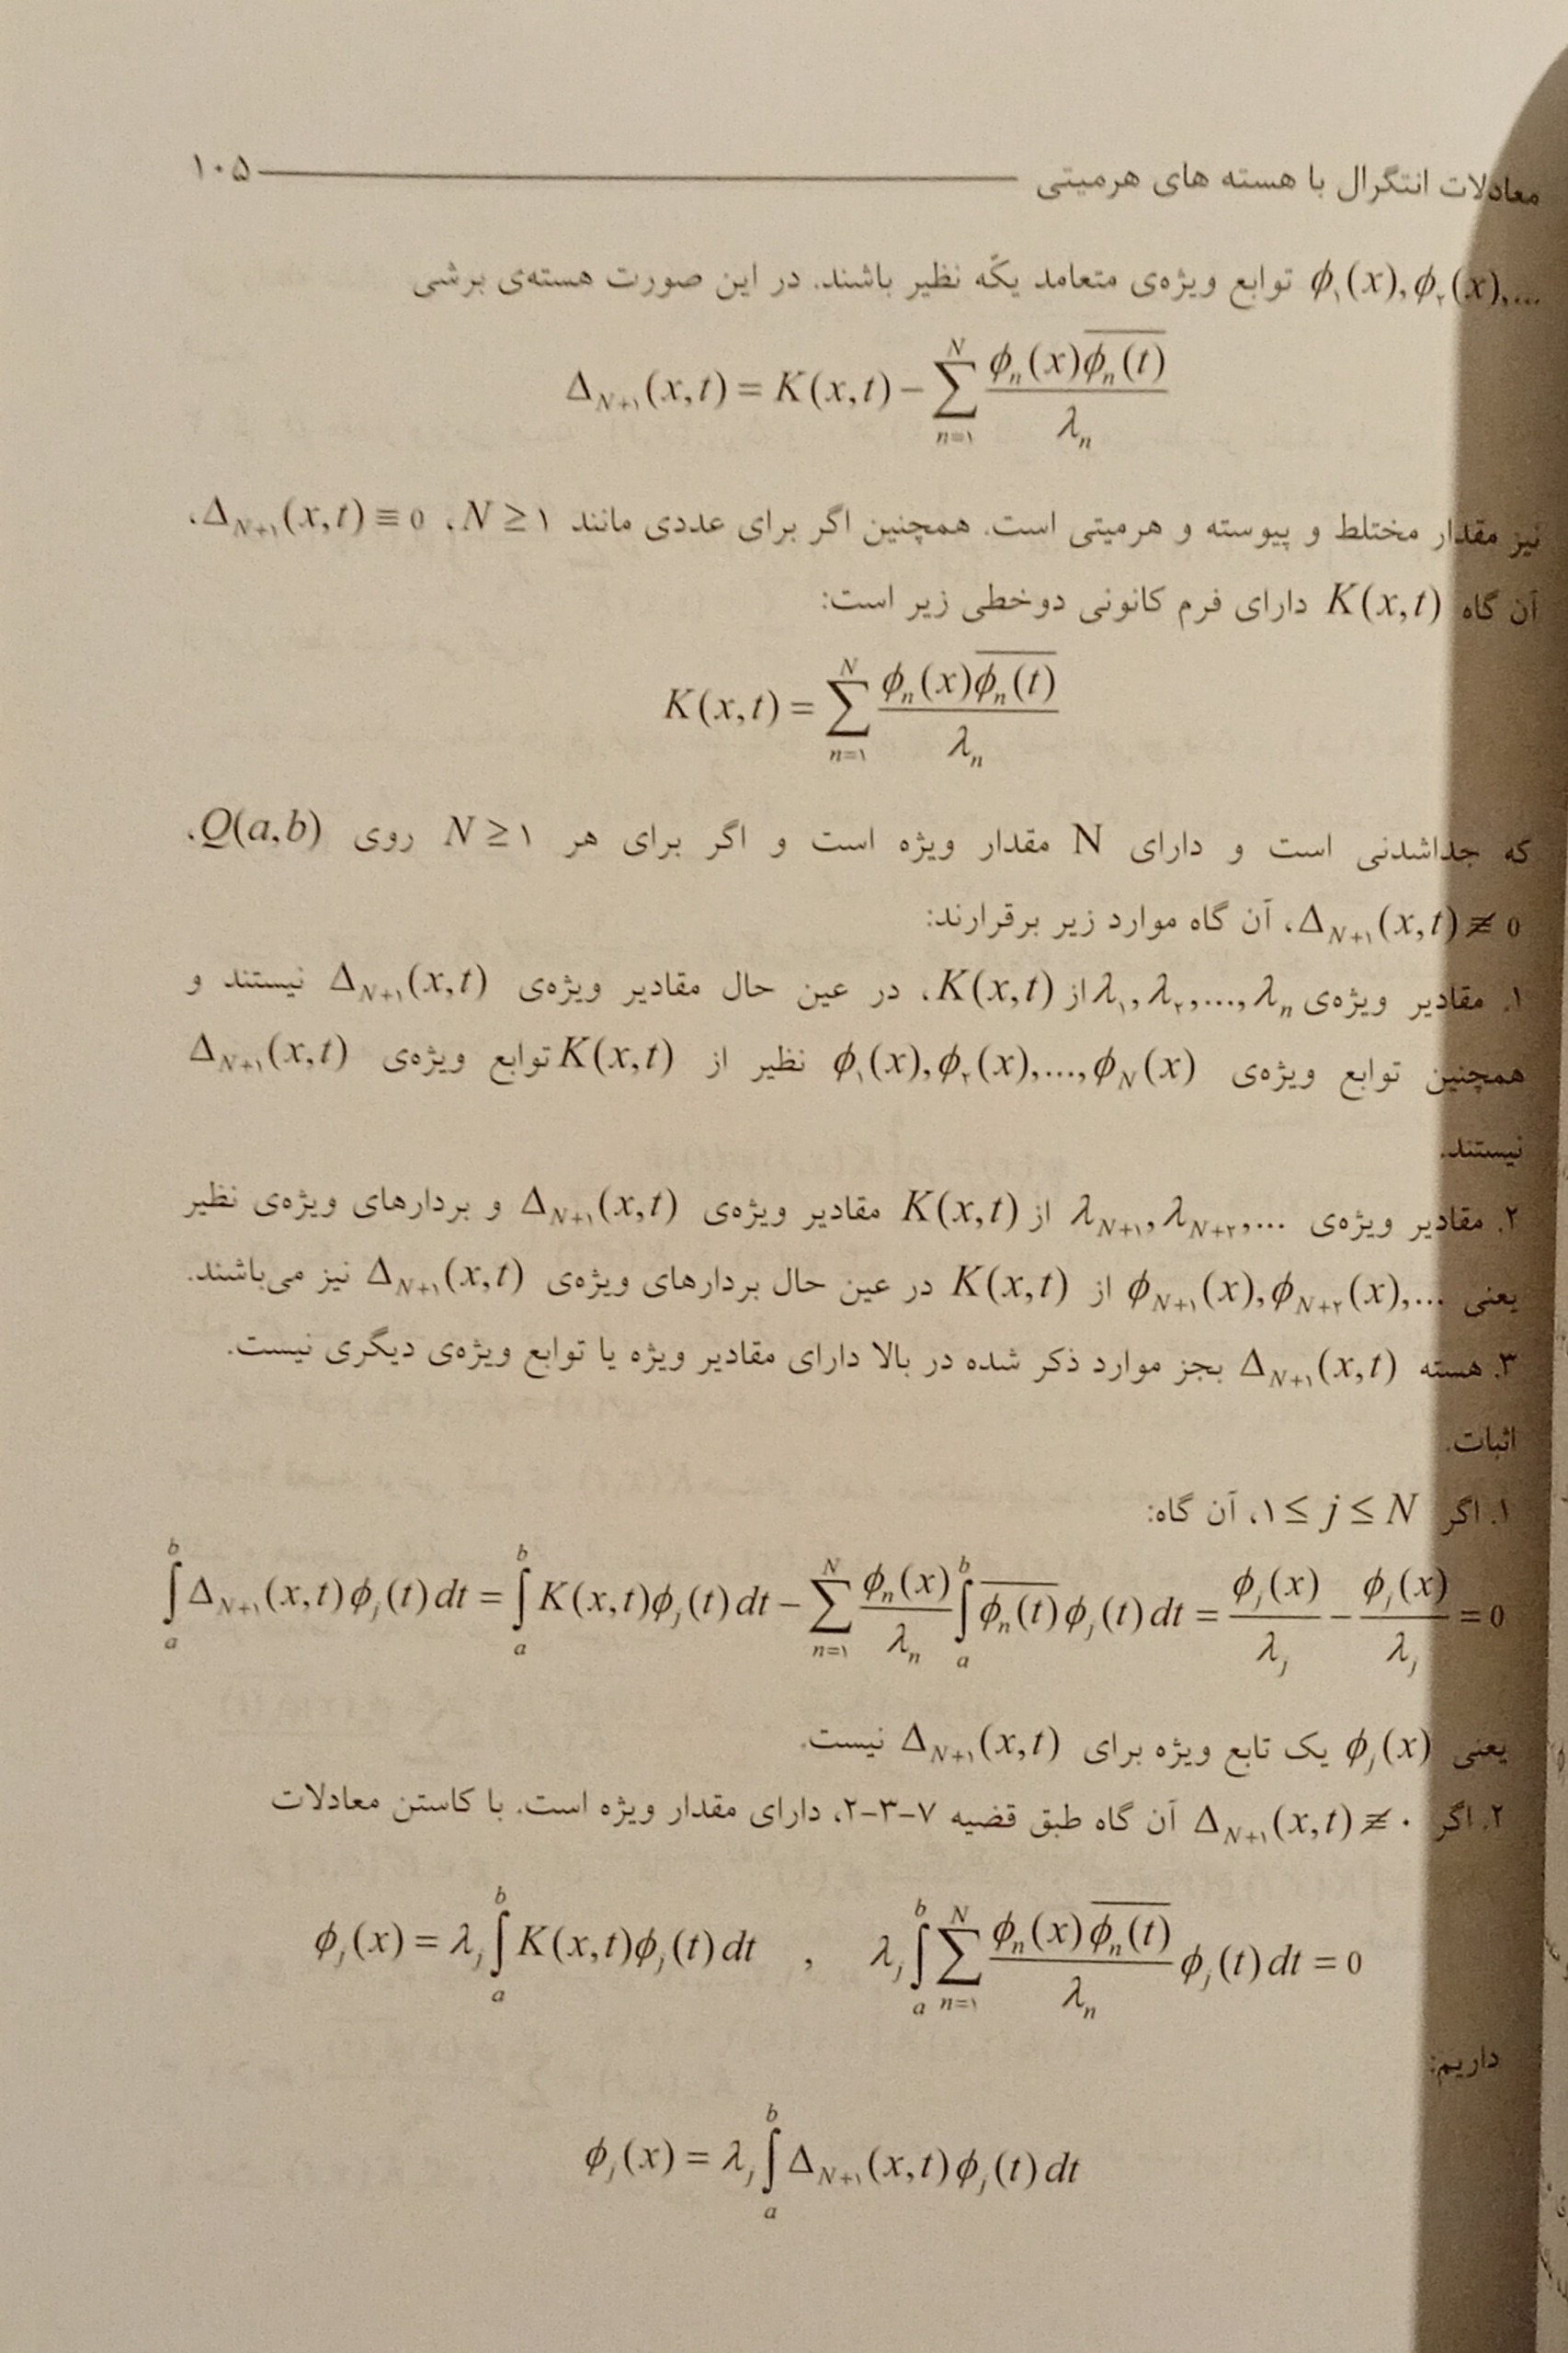 معادلات انتگرال با هسته های هرمیتی ۱۰۵
ϕ₁(x), ϕ₂(x),... توابع ویژه‌ی متعامد یکّه نظیر باشند. در این صورت هسته‌ی برشی
$\Delta_{N+۱}(x,t) = K(x,t) - \sum_{n=۱}^{N} \frac{\phi_n(x)\overline{\phi_n(t)}}{\lambda_n}$
نیز مقدار مختلط و پیوسته و هرمیتی است. همچنین اگر برای عددی مانند $N \geq ۱$، $\Delta_{N+۱}(x,t) \equiv 0$،
آن گاه $K(x,t)$ دارای فرم کانونی دوخطی زیر است:
$K(x,t) = \sum_{n=۱}^{N} \frac{\phi_n(x)\overline{\phi_n(t)}}{\lambda_n}$
که جداشدنی است و دارای N مقدار ویژه است و اگر برای هر $N \geq ۱$ روی $Q(a,b)$،
$\Delta_{N+۱}(x,t) \not\equiv 0$، آن گاه موارد زیر برقرارند:
۱. مقادیر ویژه‌ی $\lambda_۱, \lambda_۲, ..., \lambda_n$ از $K(x,t)$، در عین حال مقادیر ویژه‌ی $\Delta_{N+۱}(x,t)$ نیستند و
همچنین توابع ویژه‌ی $\phi_۱(x), \phi_۲(x), ..., \phi_N(x)$ نظیر از $K(x,t)$ توابع ویژه‌ی $\Delta_{N+۱}(x,t)$
نیستند.
۲. مقادیر ویژه‌ی $\lambda_{N+۱}, \lambda_{N+۲}, ...$ از $K(x,t)$ مقادیر ویژه‌ی $\Delta_{N+۱}(x,t)$ و بردارهای ویژه‌ی نظیر
یعنی $\phi_{N+۱}(x), \phi_{N+۲}(x), ...$ از $K(x,t)$ در عین حال بردارهای ویژه‌ی $\Delta_{N+۱}(x,t)$ نیز می‌باشند.
۳. هسته $\Delta_{N+۱}(x,t)$ بجز موارد ذکر شده در بالا دارای مقادیر ویژه یا توابع ویژه‌ی دیگری نیست.
اثبات.
۱. اگر $۱ \leq j \leq N$، آن گاه:
$\int_a^b \Delta_{N+۱}(x,t)\phi_j(t)dt = \int_a^b K(x,t)\phi_j(t)dt - \sum_{n=۱}^{N} \frac{\phi_n(x)}{\lambda_n} \int_a^b \overline{\phi_n(t)}\phi_j(t)dt = \frac{\phi_j(x)}{\lambda_j} - \frac{\phi_j(x)}{\lambda_j} = 0$
یعنی $\phi_j(x)$ یک تابع ویژه برای $\Delta_{N+۱}(x,t)$ نیست.
۲. اگر $\Delta_{N+۱}(x,t) \not\equiv ۰$ آن گاه طبق قضیه ۷-۳-۲، دارای مقدار ویژه است. با کاستن معادلات
$\phi_j(x) = \lambda_j \int_a^b K(x,t)\phi_j(t)dt \quad , \quad \lambda_j \int_a^b \sum_{n=۱}^{N} \frac{\phi_n(x)\overline{\phi_n(t)}}{\lambda_n} \phi_j(t)dt = 0$
داریم:
$\phi_j(x) = \lambda_j \int_a^b \Delta_{N+۱}(x,t)\phi_j(t)dt$